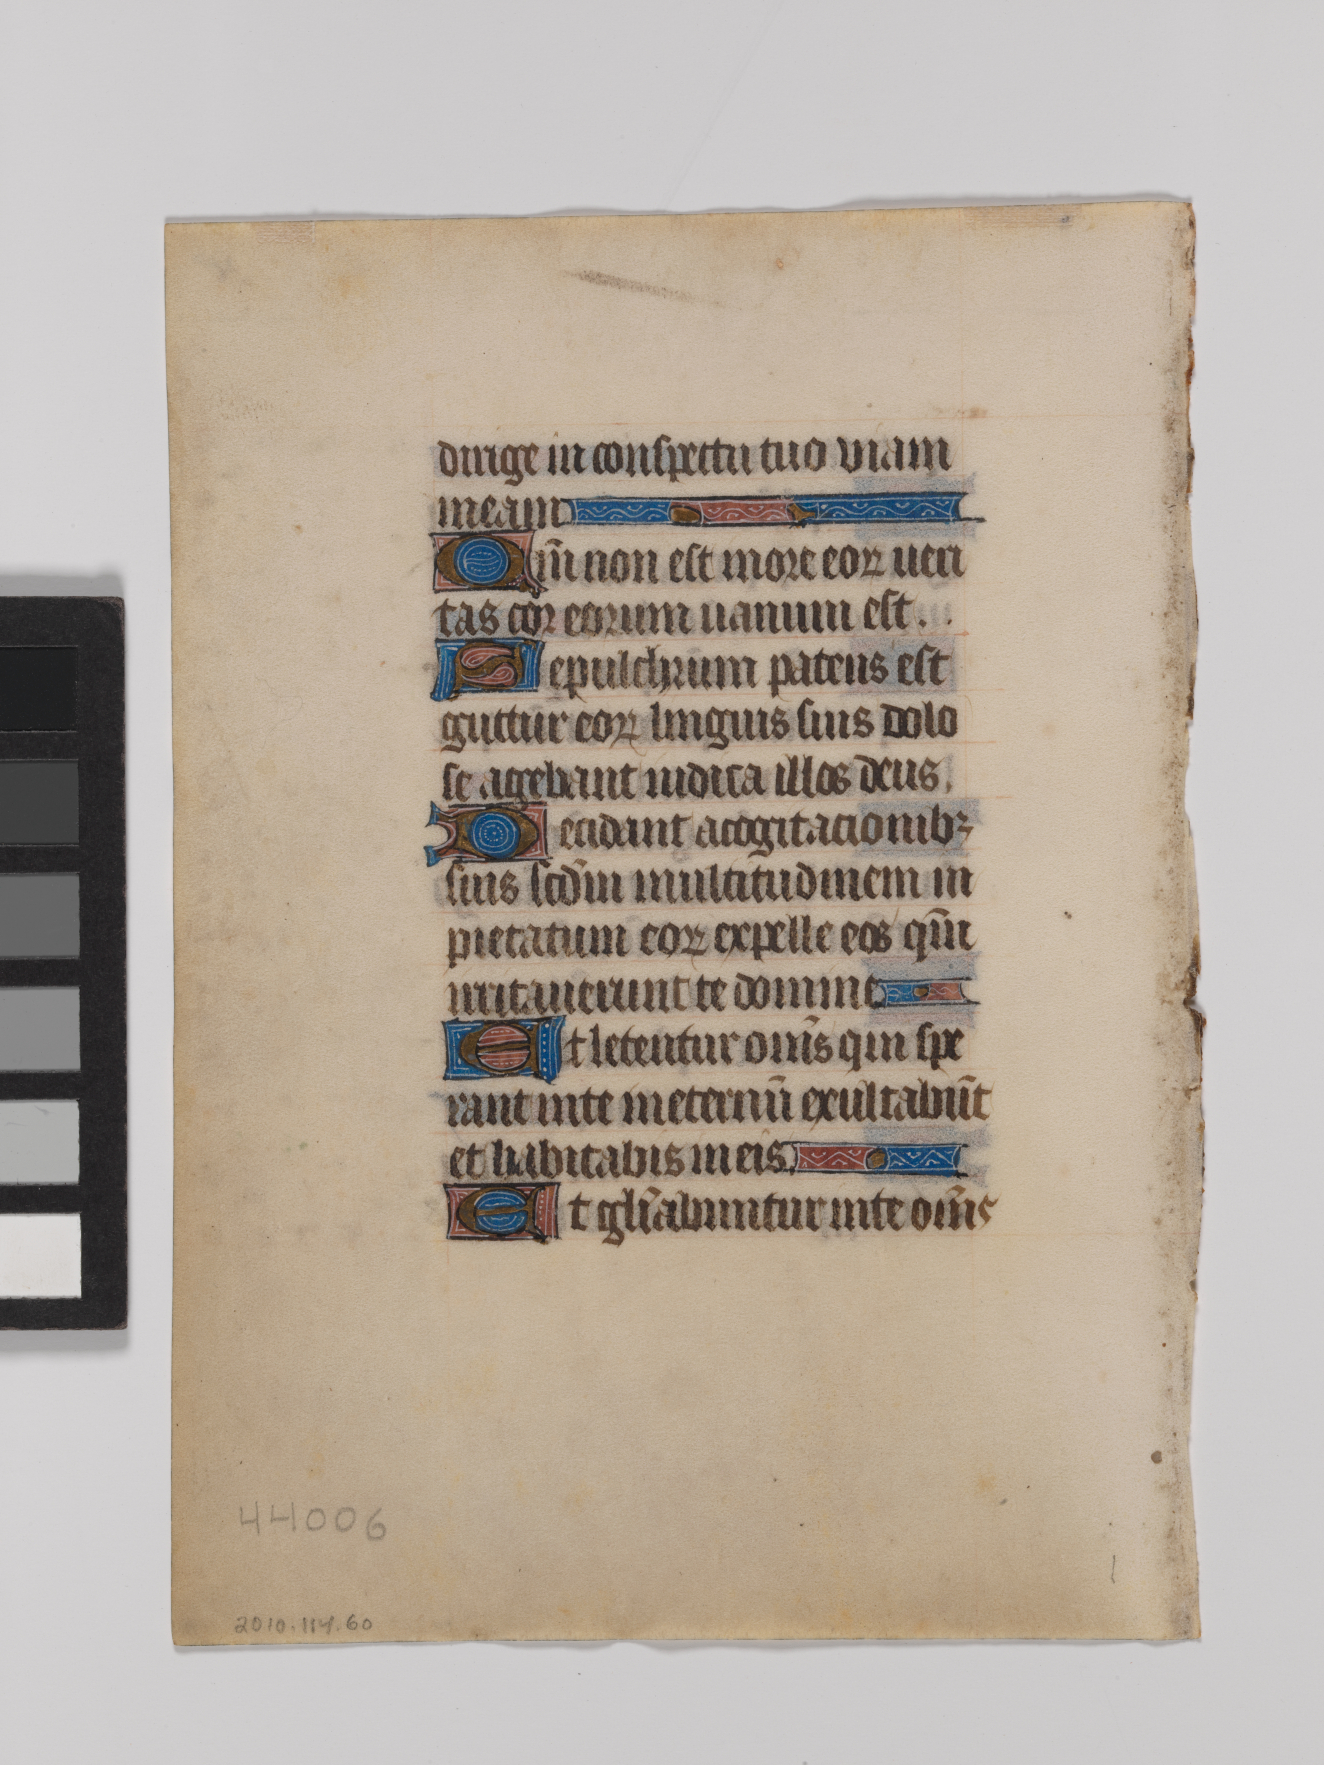 dirige in conspectu tuo viam
meam
Qm̄ non est in ore eoꝝ veri
tas cor eorum uanum est.
Sepulchrum patens est
guttur eoꝝ linguis suis dolo
se agebant iudica illos deus.
Decidant a cogitacionibꝫ
suis scd̄m multitudinem in
pietatum eoꝝ expelle eos qm̄
irritauerunt te domine
Et letentur om̄s qui spe
rant in te in eternū exultabūt
et habitabis in eis.
Et glīabuntur in te om̄s
44006
2010.114.60